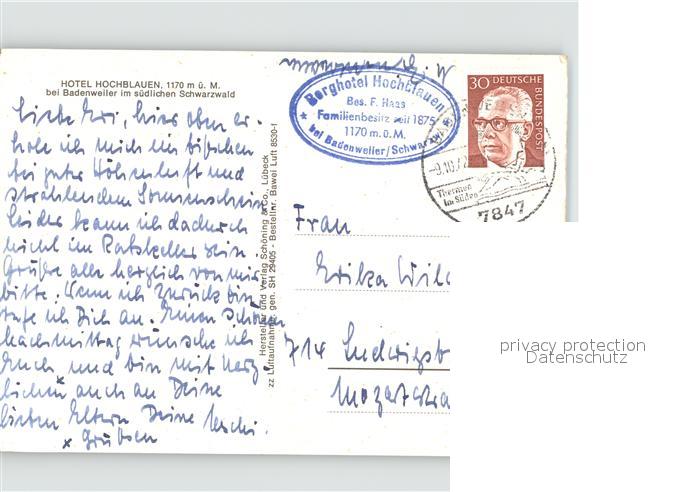 HOTEL HOCHBLAUEN, 1170 m ü. M.
bei Badenweiler im südlichen Schwarzwald
Liebe Evi, hier oben er-
hole ich mich ein bißchen
bei guter Höhenluft und
strahlendem Sonnenschein.
Leider kann ich dadurch
nicht im Ratskeller sein.
Grüße alle herzlich von mir
bitte. Wenn ich zurück bin
rufe ich Dich an. Einen schönen
Nachmittag wünsche ich
Euch und bin mit herz-
lichen x auch an Deine
lieben Eltern Deine
x Grüßen
Hersteller und Verlag Schöning & Co., Lübeck
zz Luftaufnahme, gen. SH 29405 - Bestellnr. Bawei Luft 8530-f
Berghotel Hochblauen
Bes. F. Haas
Familienbesitz seit 1875
1170 m.ü.M.
bei Badenweiler/Schwarzwald
30 DEUTSCHE
BUNDESPOST
Thermen
im Süden
7847
Frau
Erika
714 Ludwigsb
Mozartstra
privacy protection
Datenschutz